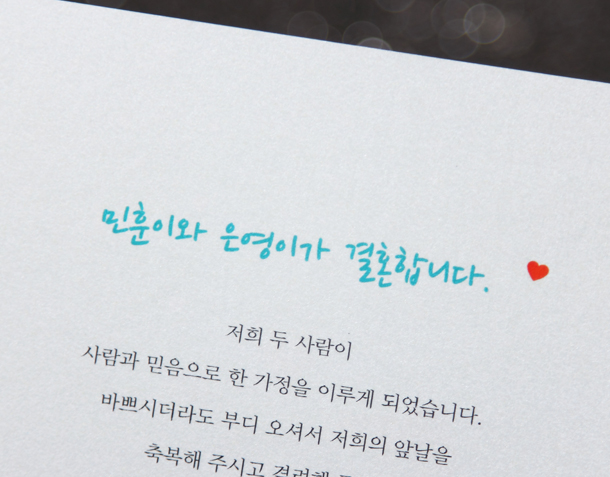 민훈이와 은영이가 결혼합니다.
저희 두 사람이
사람과 믿음으로 한 가정을 이루게 되었습니다.
바쁘시더라도 부디 오셔서 저희의 앞날을
축복해 주시고 격려해